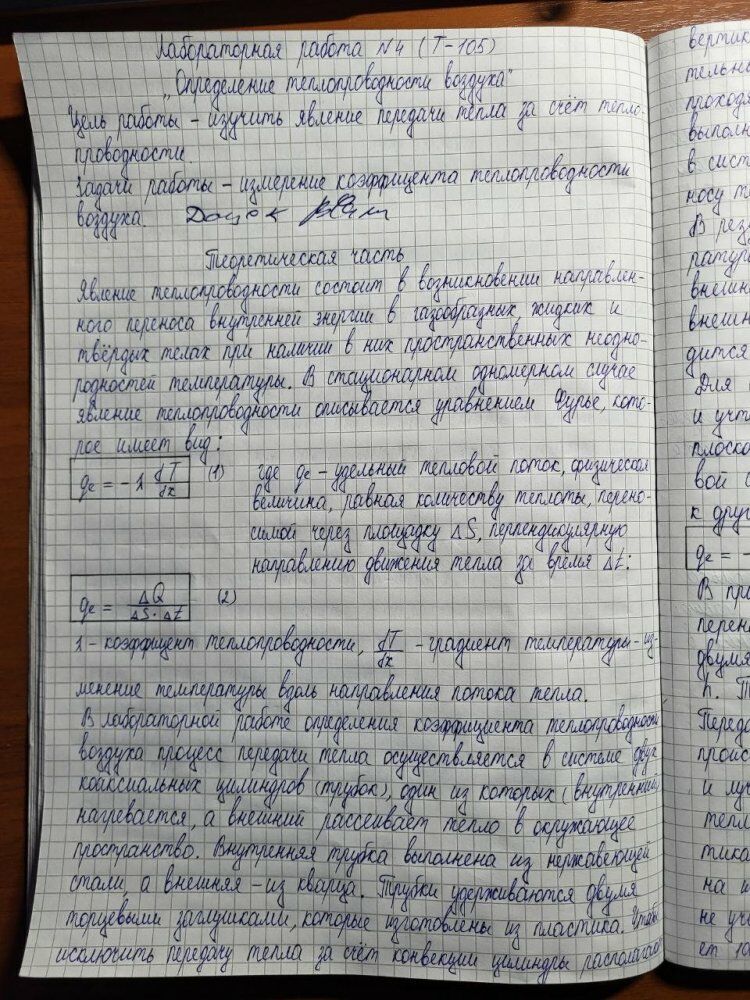 Лабораторная работа №4 (Т-105)
„Определение теплопроводности воздуха"
Цель работы - изучить явление передачи тепла за счёт тепло-
проводности.
Задачи работы - измерение коэффицента теплопроводности
воздуха.
Теоретическая часть
Явление теплопроводности состоит в возникновении направлен-
ного переноса внутренней энергии в газообразных, жидких и
твёрдых телах при наличии в них пространственных неодно-
родностей температуры. В стационарном одномерном случае
явление теплопроводности описывается уравнением Фурье, кото-
рое имеет вид:
qe = -λ dT/dx (1) где qe - удельный тепловой поток, физическая
величина, равная количеству теплоты, перено-
симой через площадку ΔS, перпендикулярную
направлению движения тепла за время Δt:
qe = ΔQ/ΔS·Δt (2)
λ - коэффицент теплопроводности, dT/dx - градиент температуры - из-
менение температуры вдоль направления потока тепла.
В лабораторной работе определения коэффициента теплопроводности
воздуха процесс передачи тепла осуществляется в системе двух
коаксиальных цилиндров (трубок), один из которых (внутренний)
нагревается, а внешний рассеивает тепло в окружающее
пространство. Внутренняя трубка выполнена из нержавеющей
стали, а внешняя - из кварца. Трубки удерживаются двумя
торцевыми заглушками, которые изготовлены из пластика. Чтобы
исключить передачу тепла за счёт конвекции цилиндры
вертик
тельны
проходя
выполн
в сист
носу те
В рез
ратур
внешн
внешн
дится
Для
и учт
плоско
вой с
к друг
qe = -
В пр
перен
двумя
h. Т
Переда
проис
и лу
тепл
тика
на и
не уч
ет